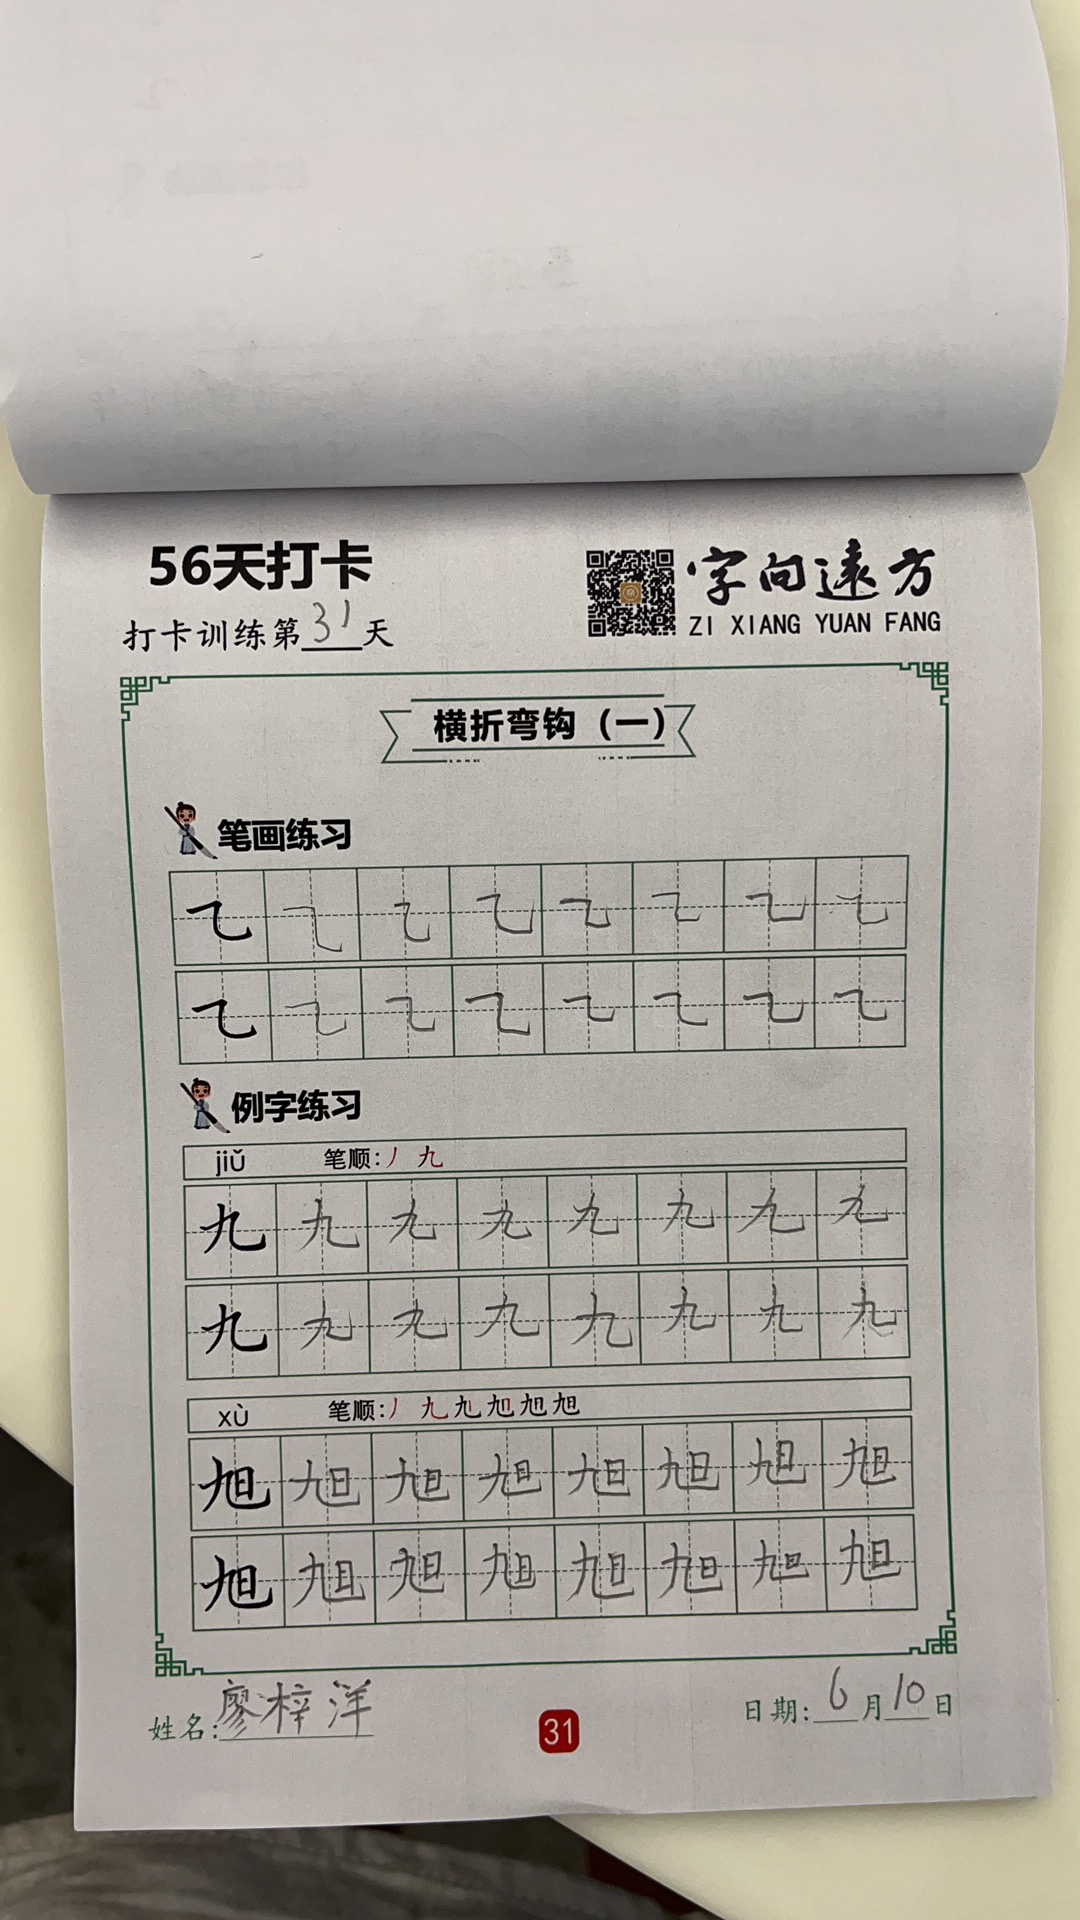 56天打卡
字向远方
打卡训练第31天
ZI XIANG YUAN FANG
横折弯钩（一）
笔画练习
㇈ ㇈ ㇈ ㇈ ㇈ ㇈ ㇈ ㇈
㇈ ㇈ ㇈ ㇈ ㇈ ㇈ ㇈ ㇈
例字练习
jiǔ 笔顺:丿 九
九 九 九 九 九 九 九 九
九 九 九 九 九 九 九 九
xù 笔顺:丿 九 九 旭 旭 旭
旭 旭 旭 旭 旭 旭 旭 旭
旭 旭 旭 旭 旭 旭 旭 旭
姓名:廖梓洋
31
日期:6月10日